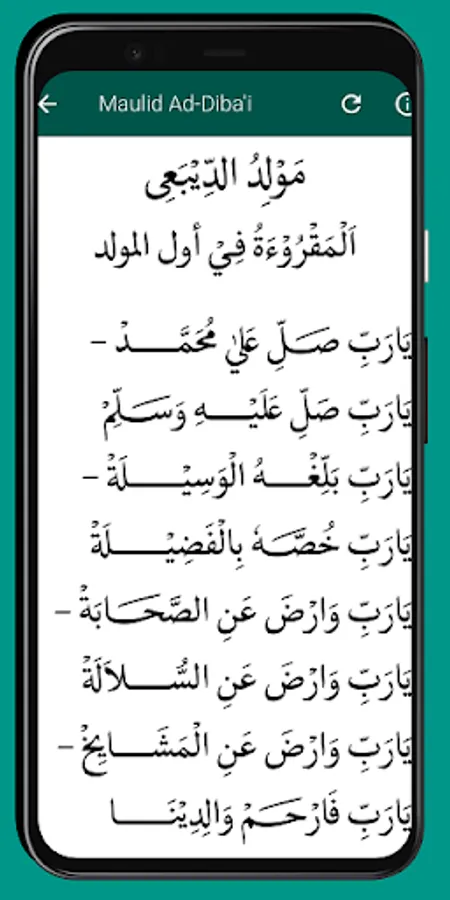 Maulid Ad-Diba'i
مَوْلِدُ الدِّيْبَعِى
اَلْمَقْرُوْءَةُ فِيْ أول المولد
يَارَبِّ صَلِّ عَلٰي مُحَمَّـــدْ –
يَارَبِّ صَلِّ عَلَيْـــهِ وَسَلِّمْ
يَارَبِّ بَلِّغْـــهُ الْوَسِيْـــلَةْ –
يَارَبِّ خُصَّـهٗ بِالْفَضِيْـــلَةْ
يَارَبِّ وَارْضَ عَنِ الصَّحَـابَةْ –
يَارَبِّ وَارْضَ عَنِ السُّـــلاَلَةْ
يَارَبِّ وَارْضَ عَنِ الْمَشَـــايِخْ –
يَارَبِّ فَارْحَـمْ وَالِدِيْنَـــا